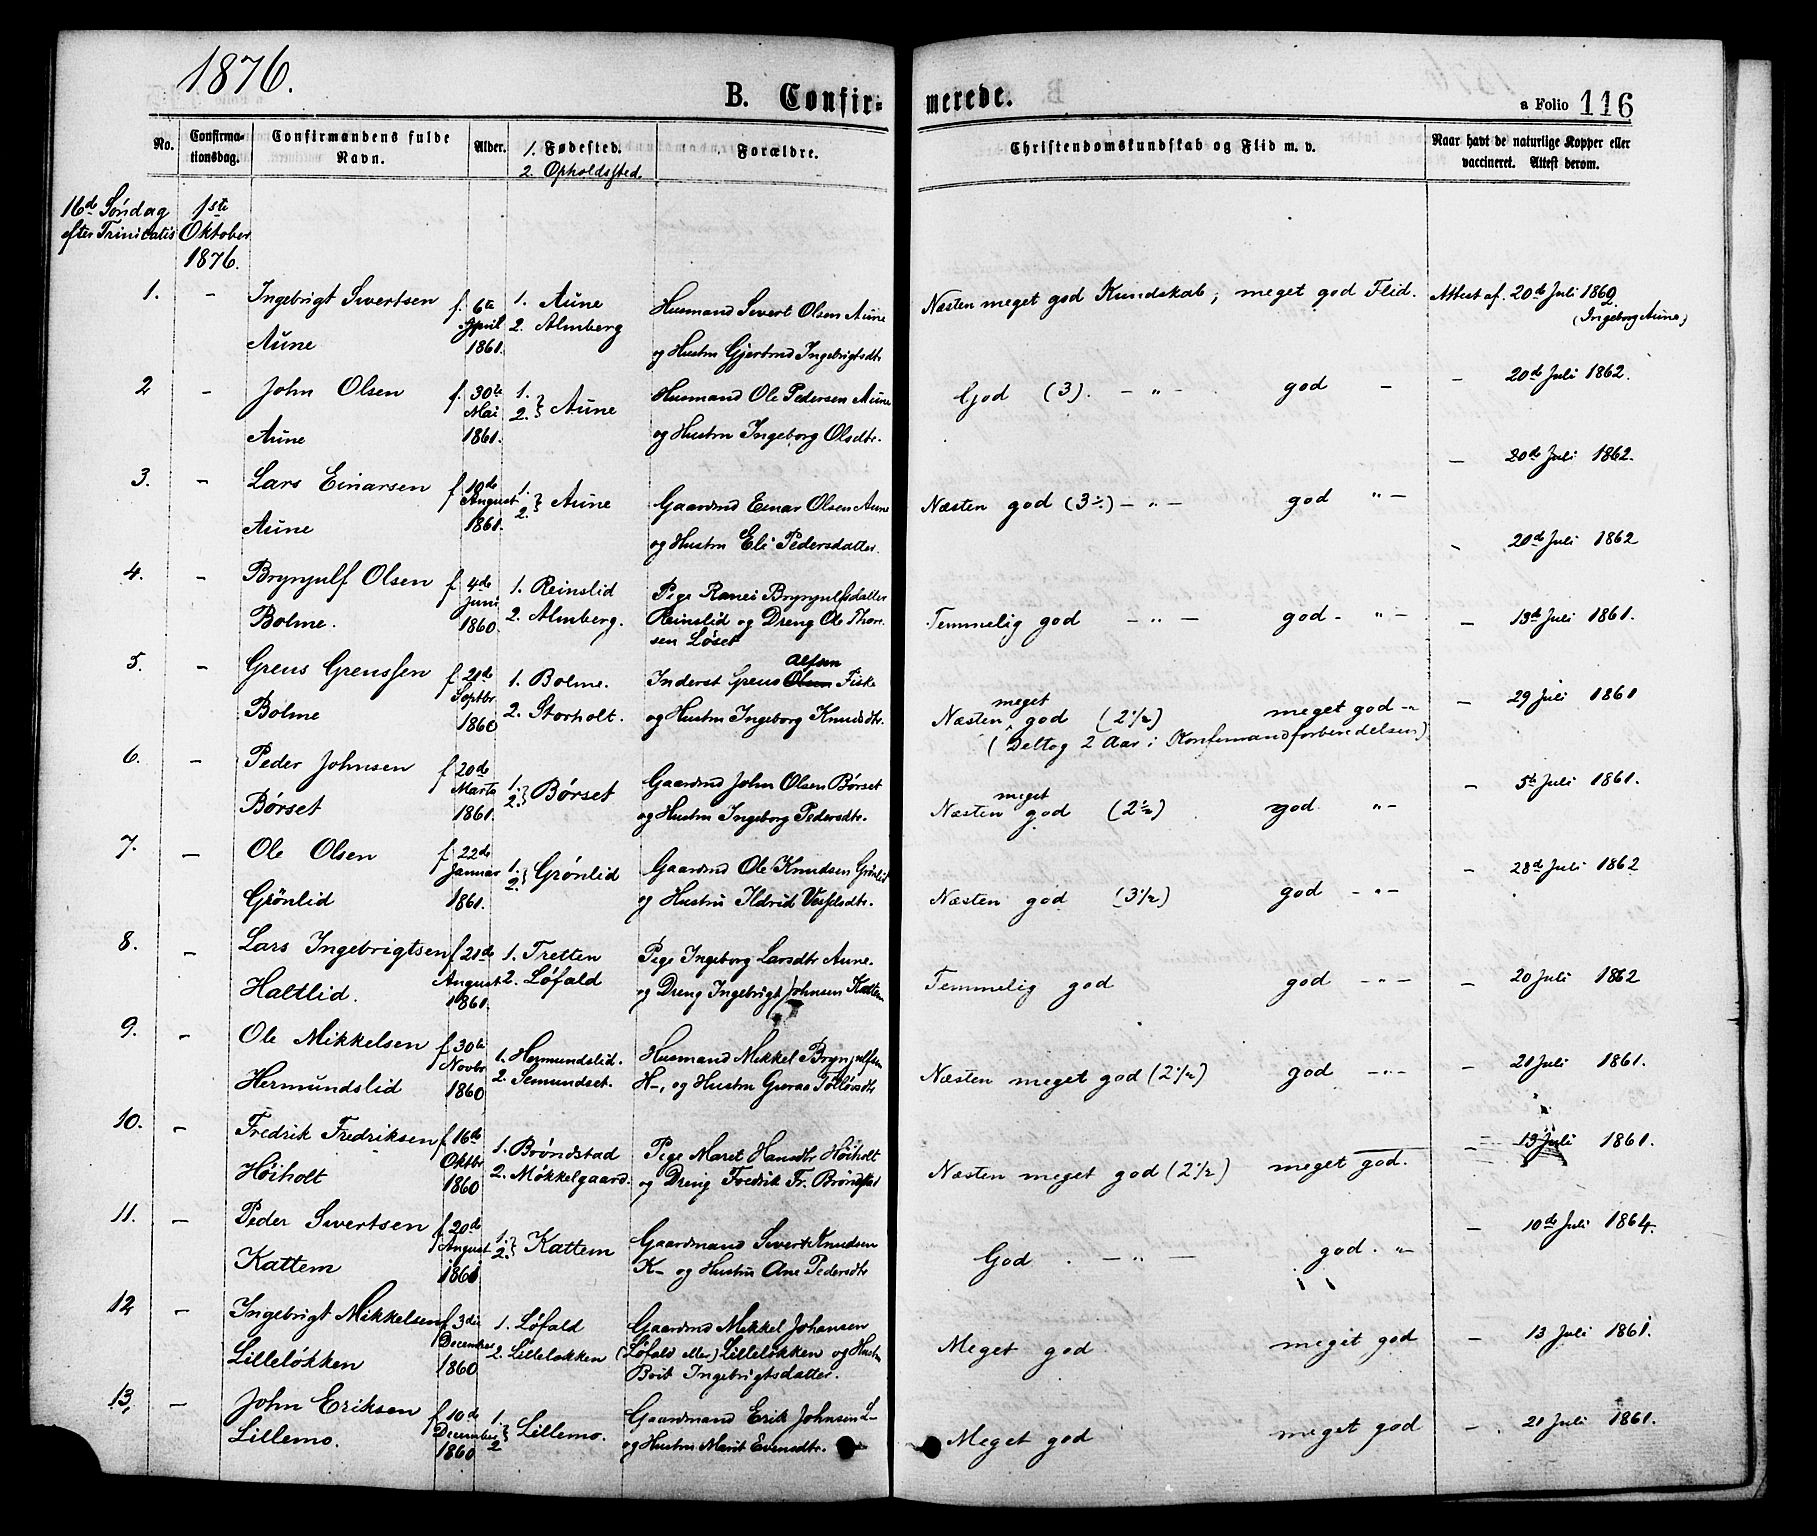 1876.
B. Confir- merede.
a Folio 116
No. Confirma-tionsdag. Confirmandens fulde Navn. Alder. 1. Fødested. 2. Opholdssted. Forældre. Christendomskundskab og Flid m. v. Naar havt de naturlige Kopper eller vaccineret. Attest derom.
16de Søndag 1ste
efter Trinitatis Oktober
1876.
1. - Ingebrigt Sivertsen f. 6te 1. Aune Husmand Sivert Olsen Aune Næsten meget god Kundskab; meget god Flid. Attest af. 20de Juli 1862.
(Ingeborg Aune)
Aune April 1861. 2. Almberg og Hustru Gjertrud Ingebrigtsdtr
2 - John Olsen f. 30te 1. Husmand Ole Pedersen Aune God (3). - " - god - - 20de Juli 1862.
Aune Mai 1861. 2. } Aune og Hustru Ingeborg Olsdtr.
3. - Lars Einarsen f. 10de 1. Gaardmd Einar Olsen Aune Næsten god (3÷) - " - god " - - 20de Juli 1862.
Aune August 1861. 2. } Aune og Hustru Eli Pedersdatter.
- 20de Juli 1862
4. - Brynjulf Olsen f. 4de 1. Reinslid Pige Ranei Brynjulfsdatter
Bolme. Juni 1860. 2. Almberg. Reinslid og Dreng Ole Thor- Temmelig god - " - god - " - - 13de Juli 1861.
sen Løset
5. - Greus Greussen f. 21de 1. Bolme. Inderst Greus Olsen Alfsen Fiske
Bolme Septbr 1860 2. Storholt. og Hustru Ingeborg Knudsdtr. Næsten meget god (2 1/2) meget god - " - 29 Juli 1861
(Deltog 2 Aar i Konfirmandforberedelsen)
6. - Peder Johnsen f. 20de 1. Gaardmd John Olsen Børset
Børset Marts 1861. 2. } Børset og Hustru Ingeborg Pedersdtr. Næsten meget god (2 1/2) god " - - 5te Juli 1861.
7. - Ole Olsen f. 22de 1. Gaardmd Ole Knudsen Grønlid
Grönlid Januar 1861. 2. } Grønlid og Hustru Ildrid Vesselsdtr. Næsten god (3 1/2) god - " - - 28de Juli 1862
8. - Lars Ingebrigtsen f. 21de 1. Tretten Pige Ingeborg Larsdtr Aune.
Haltlid. August 1861. 2. Løfald og Dreng Ingebrigt Johnsen Kattem Temmelig god god - " - - 20 Juli 1862
9. - Ole Mikkelsen f. 30te 1. Hermundslid. Husmand Mikkel Brynjulfsen
Hermundslid Novbr 1860 2. Semundset. H-, og Hustru Guraa Næsten meget god (2 1/2) god - " - - 21 Juli 1861.
10. - Fredrik Fredriksen f. 16de 1. Brøndstad Pige Maret Hansdtr Høiholt
Høiholt Oktbr 1860 2. Møkkelgaard. og Dreng Fredrik Fr. Brøndstad Næsten meget god (2 1/2) meget god. - 13 Juli 1861.
11. - Peder Sivertsen f. 20de 1. Gaardmand Sivert Knudsen
Kattem August 1861 2. } Kattem K- og Hustru Ane Pedersdtr God . - " - god. " - 10de Juli 1864.
12 - Ingebrigt Mikkelsen f. 3die 1. Løfald Gaardmd Mikkel Johansen
Lilleløkken December 1860 2. Lilleløkken (Løfald eller) Lilleløkken og Hustru Meget god meget god - 13 Juli 1861.
Brit Ingebrigtsdatter.
13. - John Eriksen f. 10de 1. Gaardmand Erik Johnsen L-
Lillemo. December 1860 2 } Lillemo. og Hustru Marit Evensdtr. Meget god meget god - 21 Juli 1861.